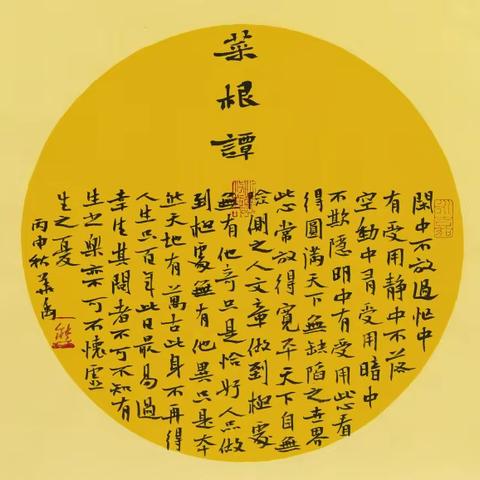 菜根譚
閑中不放過忙中
有受用靜中不落
空動中有受用暗中
不欺隱明中有受用此心看
得圓滿天下無缺陷之世界
此心常放得寬平天下自無
險側之人文章做到極處
無有他奇只是恰好人品做
到極處無有他異只是本
然天地有萬古此身不再得
人生只百年此日最易過
幸生其間者不可不知有
生之樂亦不可不懷虛
生之憂
丙申秋